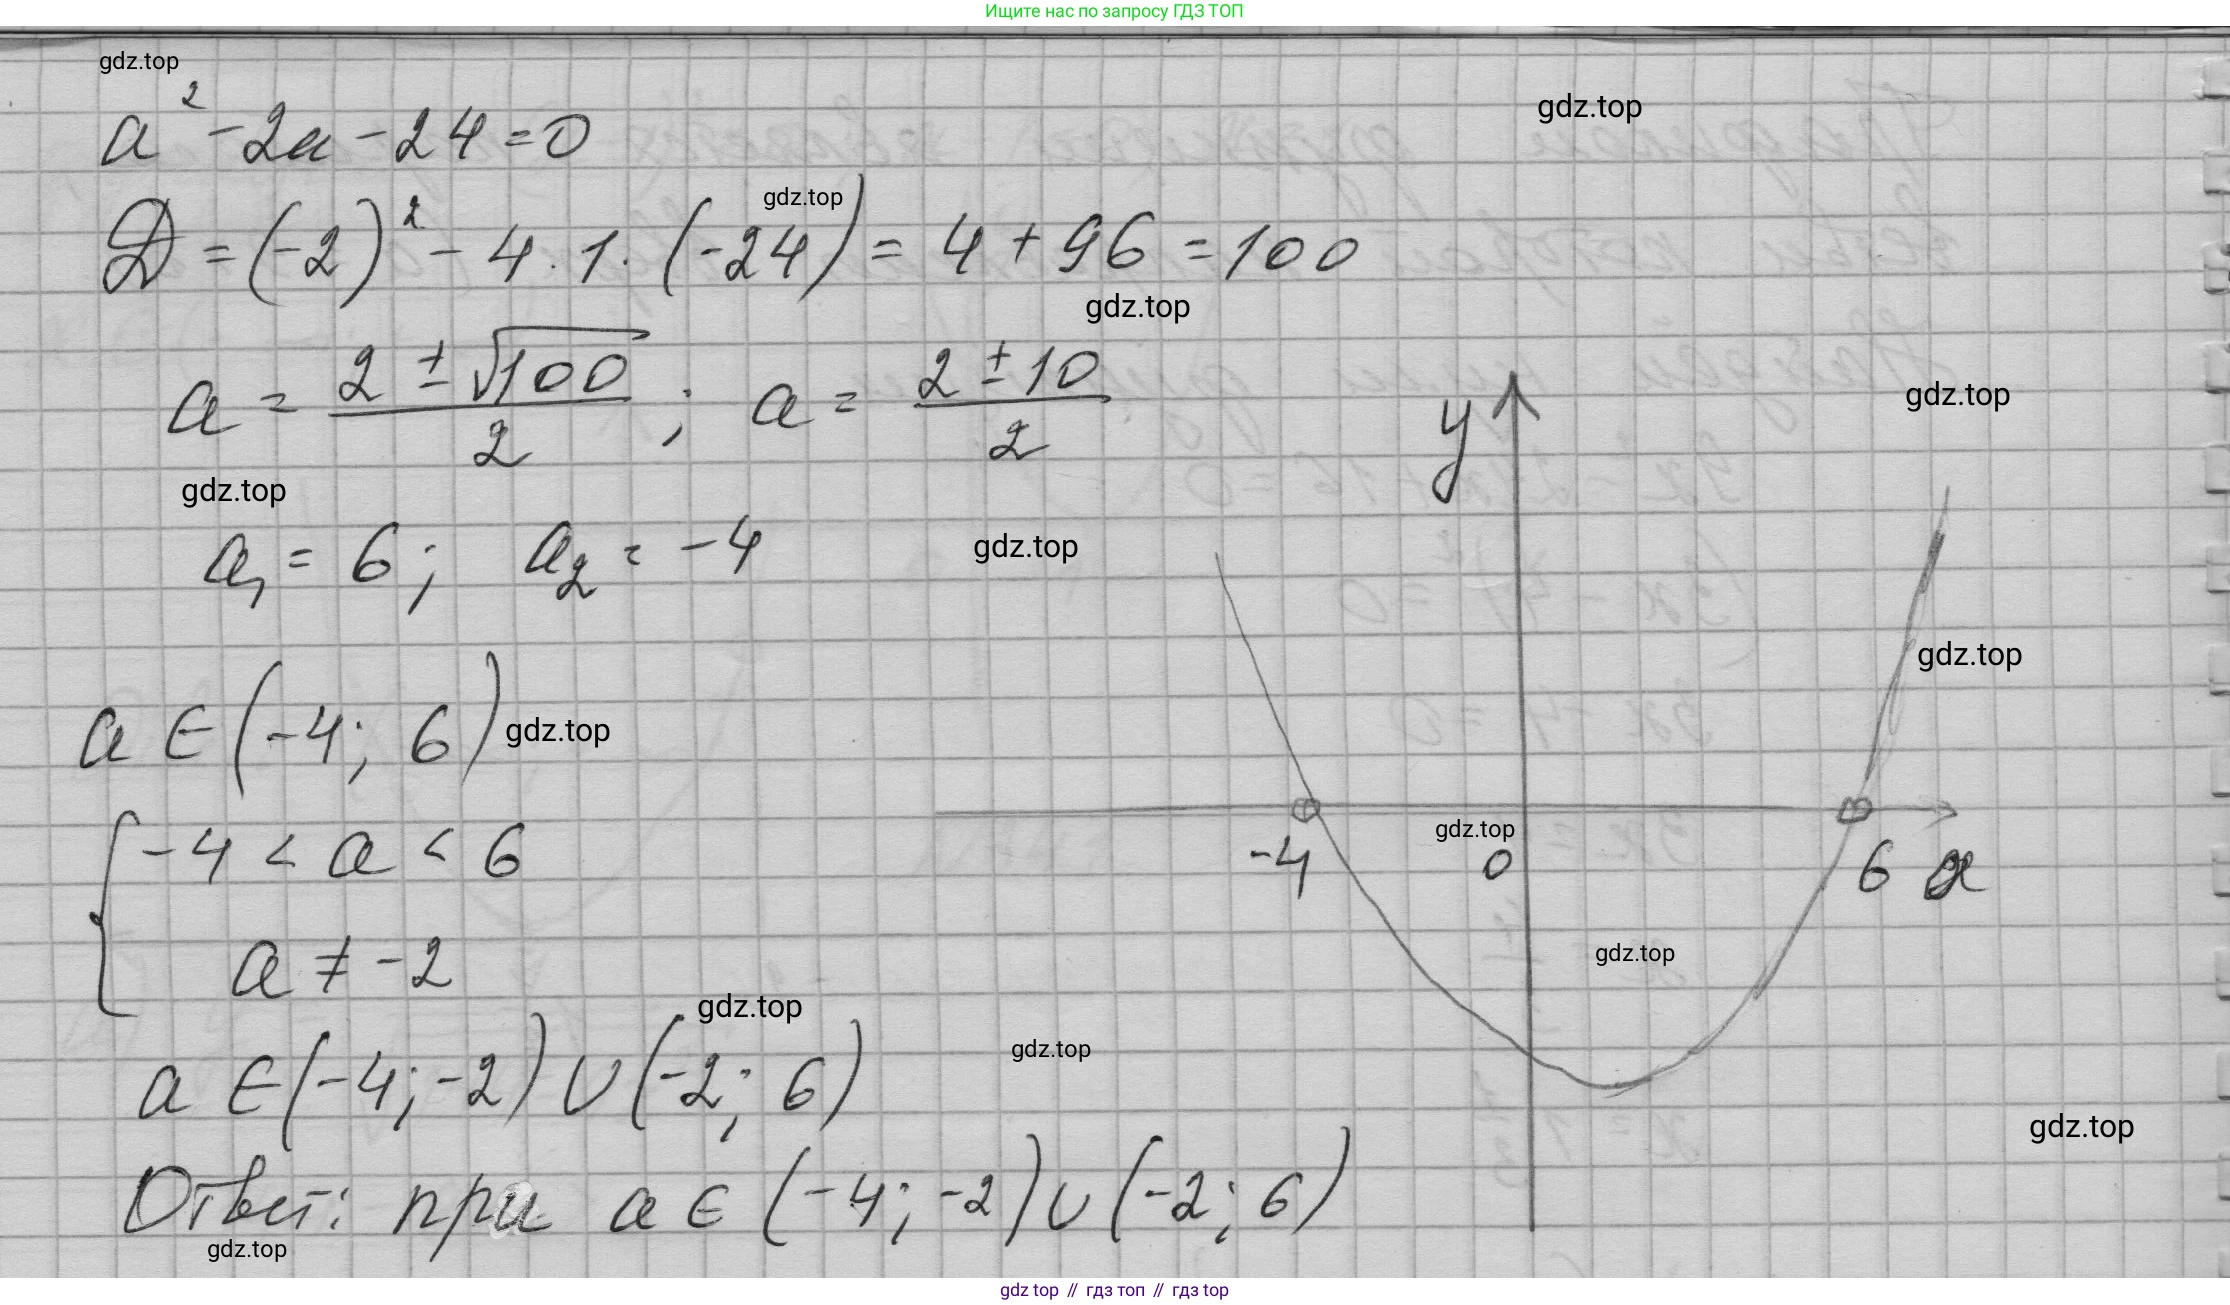 Ищите нас по запросу ГДЗ ТОП
gdz.top
gdz.top
a² - 2a - 24 = 0
gdz.top
D = (-2)² - 4 · 1 · (-24) = 4 + 96 = 100
gdz.top
a = (2 ± √100)/2 ; a = (2 ± 10)/2
y
gdz.top
gdz.top
a₁ = 6 ; a₂ = -4
gdz.top
gdz.top
a ∈ (-4; 6)
gdz.top
gdz.top
-4 0 6 x
{ -4 < a < 6
a ≠ -2
gdz.top
gdz.top
gdz.top
a ∈ (-4; -2) ∪ (-2; 6)
gdz.top
Ответ: при a ∈ (-4; -2) ∪ (-2; 6)
gdz.top
gdz top // гдз топ // гдз top